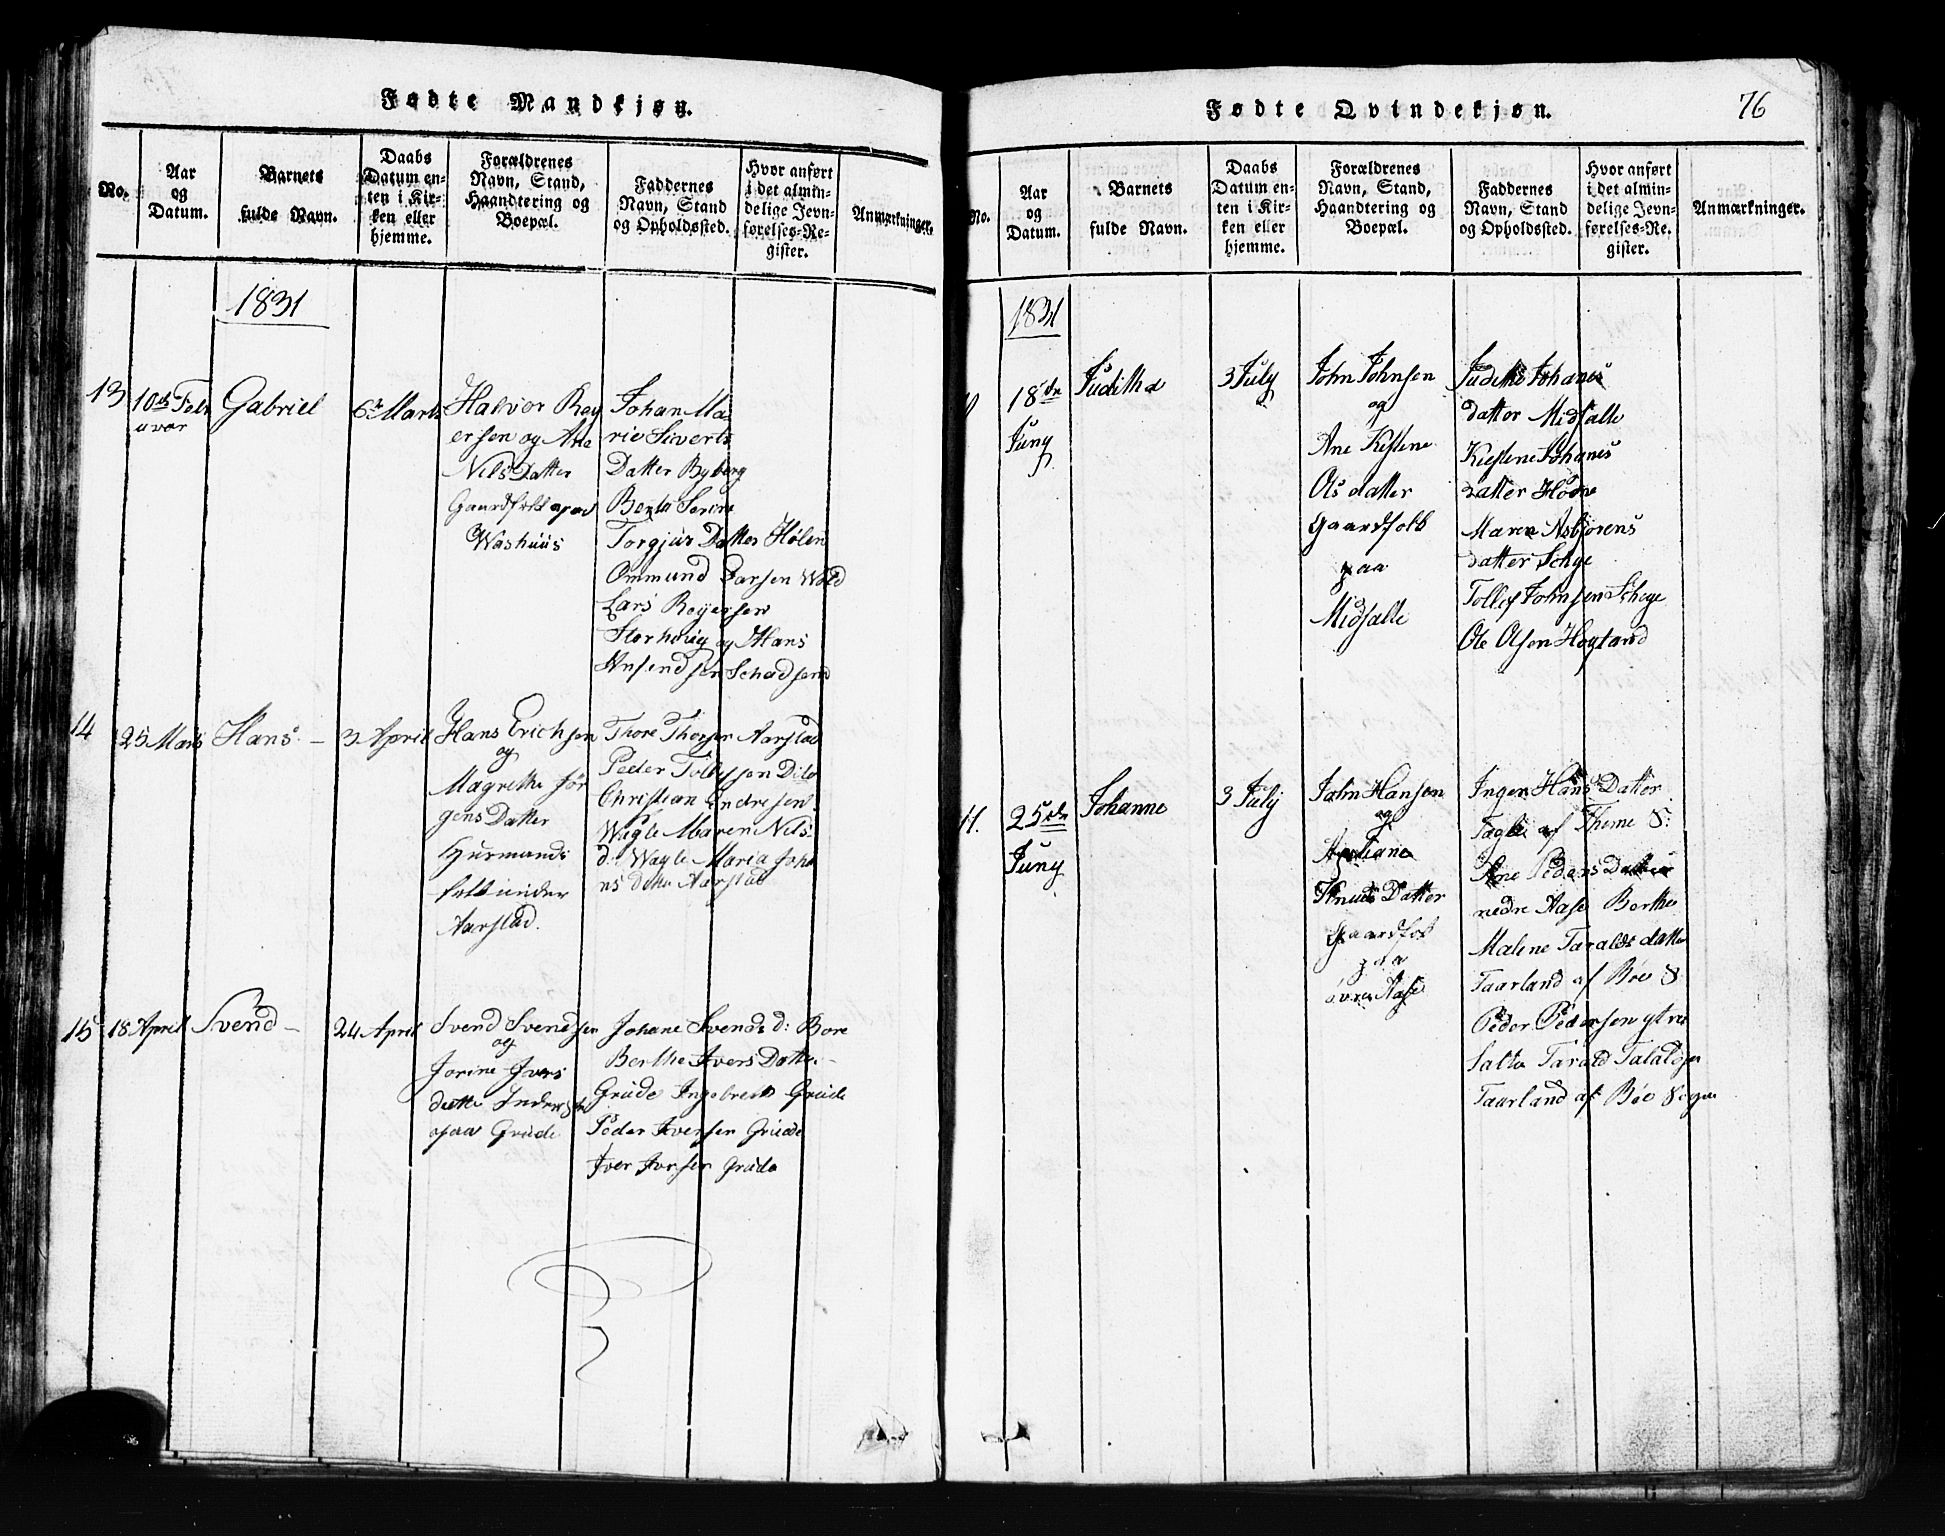 Fødte Mandkjøn.
No.
Aar
og
Datum.
Barnets
fulde Navn.
Daabs
Datum en-
ten i Kir-
ken eller
hjemme.
Forældrenes
Navn, Stand,
Haandtering og
Boepæl.
Faddernes
Navn, Stand
og Opholdssted.
Hvor anført
i det almin-
delige Jevn-
førelses-Re-
gister.
Anmærkninger.
1831
13
10de Febr
uvar
Gabriel
6te Marts
Halvor Rey
ersen og Ane
Nils Datter
Gaardfolk paa
Washuus
Johan Ma
rie Siverts
Datter Ryberg
Berte Serine
Torgjus Datter Hølen
Ommund Larsen Wold
Lars Reyersen
Storhoug og Hans
14
25 Marts
Hans. –
3 April
Hans Erichsen
og
Magrethe Jør
gens Datter
Huusmands
folk under
Aarstad.
Thore Thorsen Aarstad
Peder Tollefsen
Christian Endresen
Wagle Maren Nils
d: Wagle Maria Joha
ns datter Aarstad
15
18 April
Svend –
24 April
Svend Svendsen
og
Jorine Ivers
datter
paa Grude
Johane Svends d: Bore
Berthe Ivers Datter –
Grude Ingebreth Grude
Peder Iversen Grude
Iver Iversen Grude
Fødte Qvindekjøn.
76
No.
Aar
og
Datum.
Barnets
fulde Navn.
Daabs
Datum en-
ten i Kir-
ken eller
hjemme.
Forældrenes
Navn, Stand,
Haandtering og
Boepæl.
Faddernes
Navn, Stand
og Opholdssted.
Hvor anført
i det almin-
delige Jevn-
førelses-Re-
gister.
Anmærkninger.
1831
18de
Juny
Juditha
3 July
John Johnsen
og
Ane Kistene
Ols datter
Gaardfolk
paa
Midfalle
Judithe Johanes
datter Midfalle
Kiestene Johanes
datter Hodne
Maren Asbjørens
datter Schye
Tollef Johnsen Schye
Ole Olsen Hogland
11.
25de
Juny
Johanne
3 July
John Hansen
og
Knuds Datter
Gaardfolk
paa
øvre Aase
Inger Hans Datter
Fagle af Thime S:
Ane Peders Datter
nedre Aase Berthe
Malene Taralds datter
Taarland af Bøe S
Peder Pedersen ytre
Salte Tarald Taraldsen
Taarland af Bøe Sogn